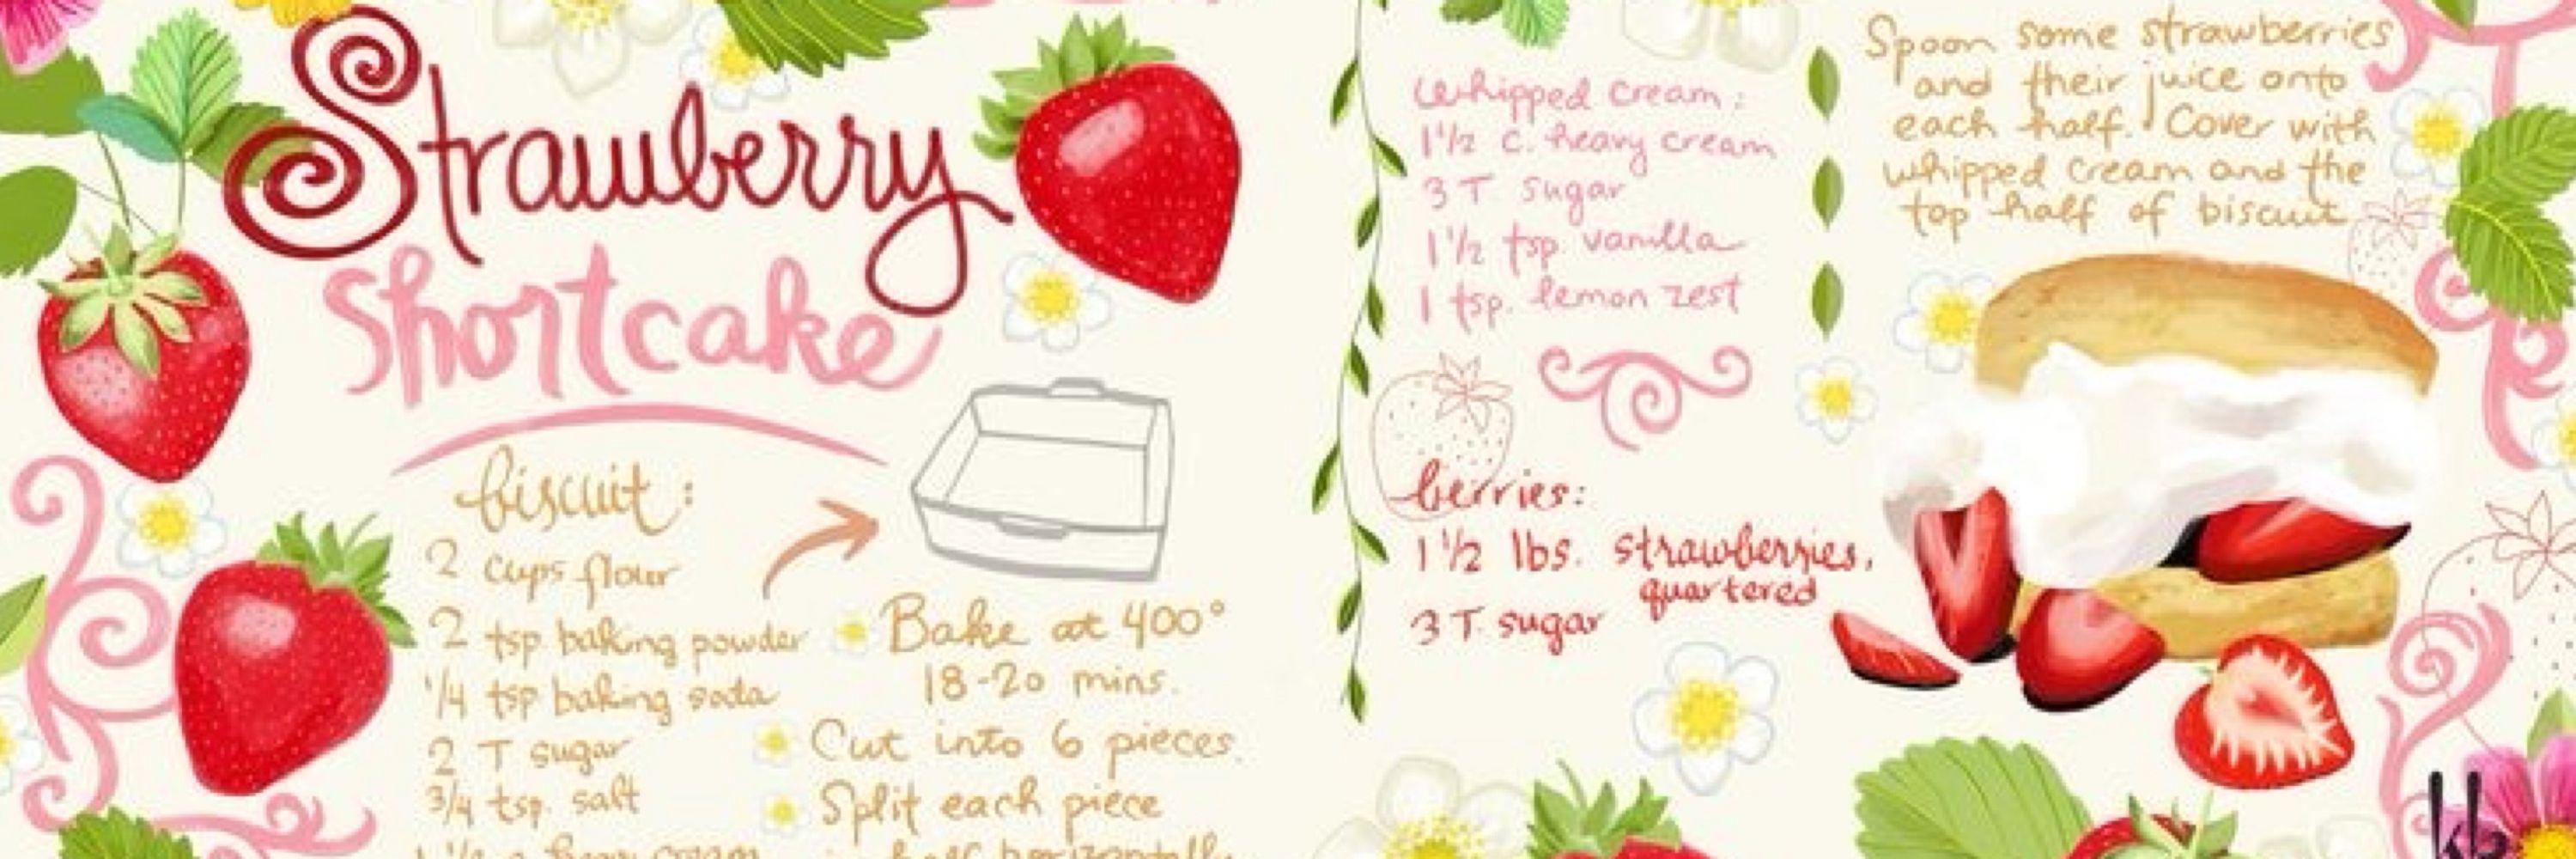 Strawberry
Shortcake
biscuit:
2 cups flour
2 tsp baking powder
1/4 tsp baking soda
2 T sugar
3/4 tsp. salt
1 1/2 c heavy cream
Bake at 400°
18-20 mins.
Cut into 6 pieces.
Split each piece
in half horizontally
Whipped cream:
1 1/2 c. heavy cream
3 T sugar
1 1/2 tsp. vanilla
1 tsp. lemon zest
berries:
1 1/2 lbs. strawberries,
quartered
3 T. sugar
Spoon some strawberries
and their juice onto
each half. Cover with
whipped cream and the
top half of biscuit
kb